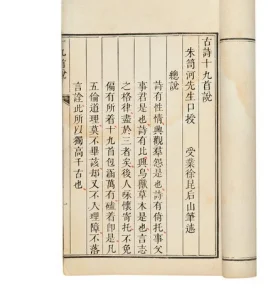 古詩十九首說
朱笥河先生口授 受業徐昆后山筆述
總說
詩有性情興觀羣怨是也詩有倚托事父
事君是也詩有比興鳥獸草木是也言志
之格律盡於三者矣後人咏懷寄托不免
偏有所着十九首包涵萬有磕着即是凡
五倫道理莫不畢該却又不入理障不落
言詮此所以獨高千古也
九首說